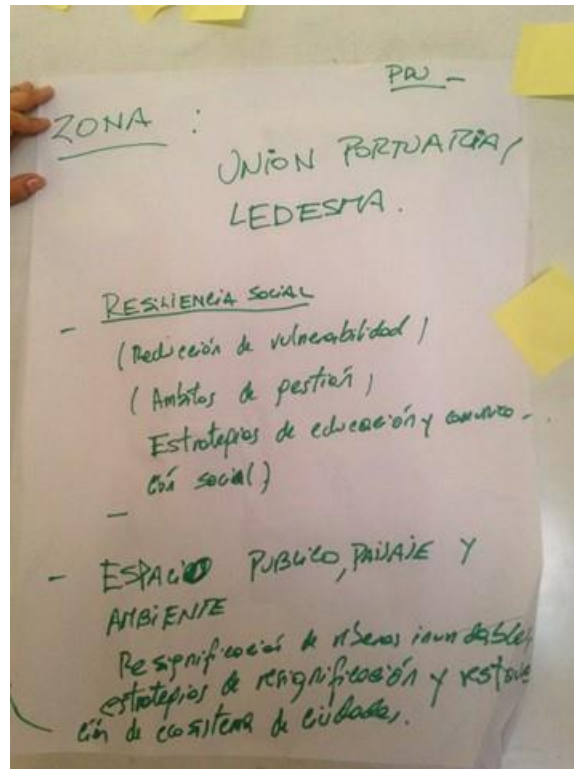 PDU -
ZONA :
UNION PORTUARIA /
LEDESMA.
- RESILIENCIA SOCIAL
(Reducción de vulnerabilidad)
(Ambitos de gestión,
Estrategias de educación y comunica-
ción social)
-
- ESPACIO PUBLICO, PAISAJE Y
AMBIENTE
Resignificación de riberas inundables,
estrategias de resignificación y restaura
ción de ecosistema de ciudades.